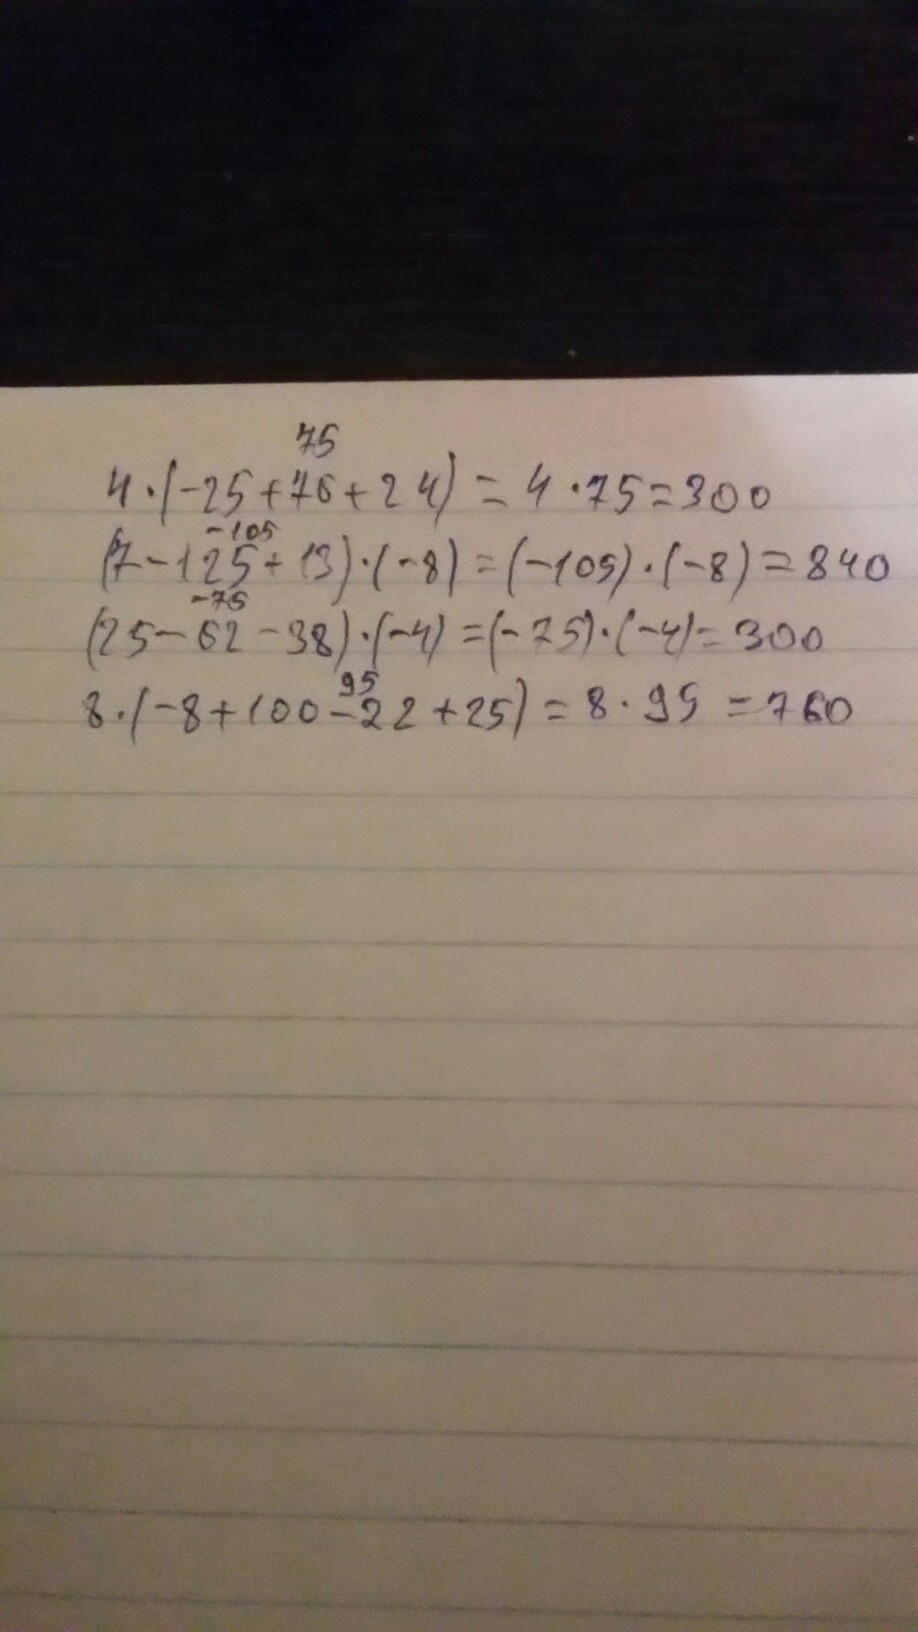 75
4·(-25+76+24) = 4·75=300
-105
(7-125+13)·(-8)=(-105)·(-8)=840
-75
(25-62-38)·(-4)=(-75)·(-4)=300
95
8·(-8+100-22+25)=8·95=760